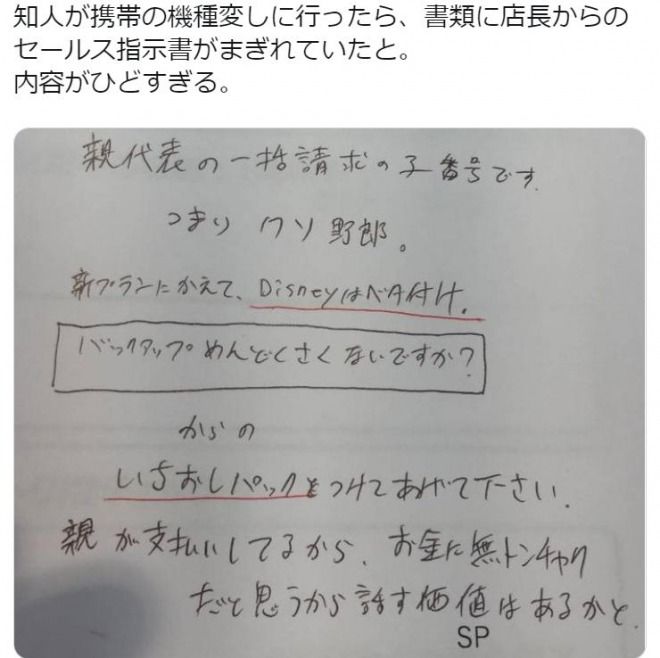 知人が携帯の機種変しに行ったら、書類に店長からの
セールス指示書がまぎれていたと。
内容がひどすぎる。
親代表の一括請求の子番号です。
つまりクソ野郎。
新プランにかえて、Disneyはベタ付け。
バックアップめんどくさくないですか?
からの
いちおしパックをつけてあげて下さい。
親が支払いしてるから、お金に無トンチャク
だと思うから話す価値はあるかと。
SP